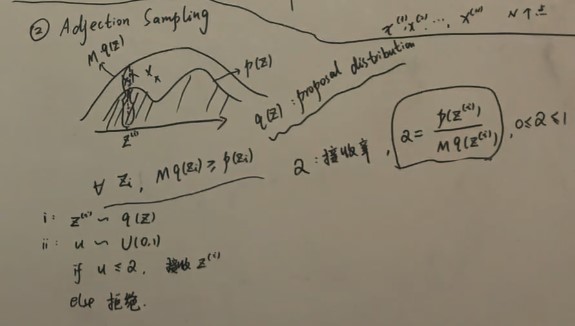 x⁽¹⁾, x⁽²⁾, ..., x⁽ᴺ⁾ N个点
② Adjection Sampling
M q(z)
p(z)
z⁽ⁱ⁾
q(z): proposal distribution
∀ zᵢ, M q(zᵢ) ≥ p(zᵢ)
α: 接收率, α = p(z⁽ⁱ⁾) / M q(z⁽ⁱ⁾), 0 ≤ α ≤ 1
i: z⁽ⁱ⁾ ~ q(z)
ii: u ~ U(0,1)
if u ≤ α, 接收 z⁽ⁱ⁾
else 拒绝.